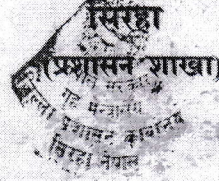 सिरहा
(प्रशासन शाखा)
नेपाल सरकार
गृह मन्त्रालय
जिल्ला प्रशासन कार्यालय
सिरहा नेपाल